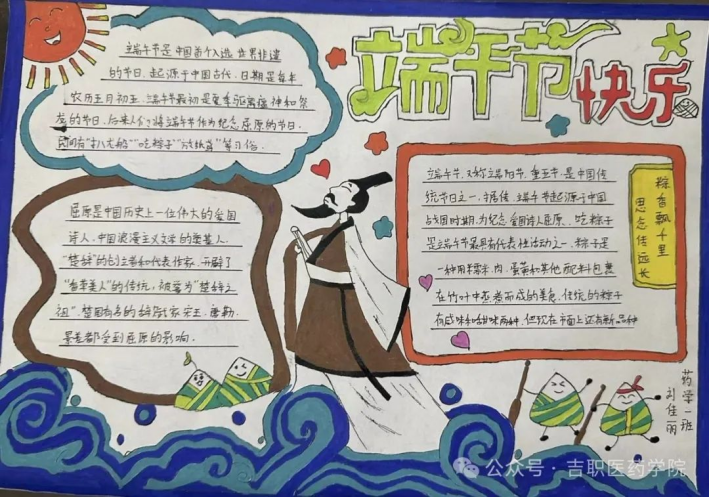 端午节
快乐
端午节是中国首个入选世界非遗
的节日,起源于中国古代,日期是每年
农历五月初五,端午最初是夏季驱离瘟神和祭
龙的节日,后来人们将端午节作为纪念屈原的节日.
民间有“扒龙船”“吃粽子”“放纸鸢”等习俗.
屈原是中国历史上一位伟大的爱国
诗人,中国浪漫主义文学的奠基人,
“楚辞”的创立者和代表作家,开辟了
“香草美人”的传统,被誉为“楚辞之
祖”,楚国有名的辞赋家宋玉、唐勒、
景差都受到屈原的影响.
端午节,又称端阳节、重五节,是中国传
统节日之一,据传,端午节起源于中国
战国时期,为纪念爱国诗人屈原、吃粽子
是端午节最具有代表性活动之一,粽子是
一种用糯米、肉、蛋黄和其他配料包裹
在竹叶中蒸煮而成的美食,传统的粽子
有咸味和甜味两种,但现在市面上还有新品种
粽香飘千里
思念传远长
药学一班
刘佳丽
公众号·吉职医药学院